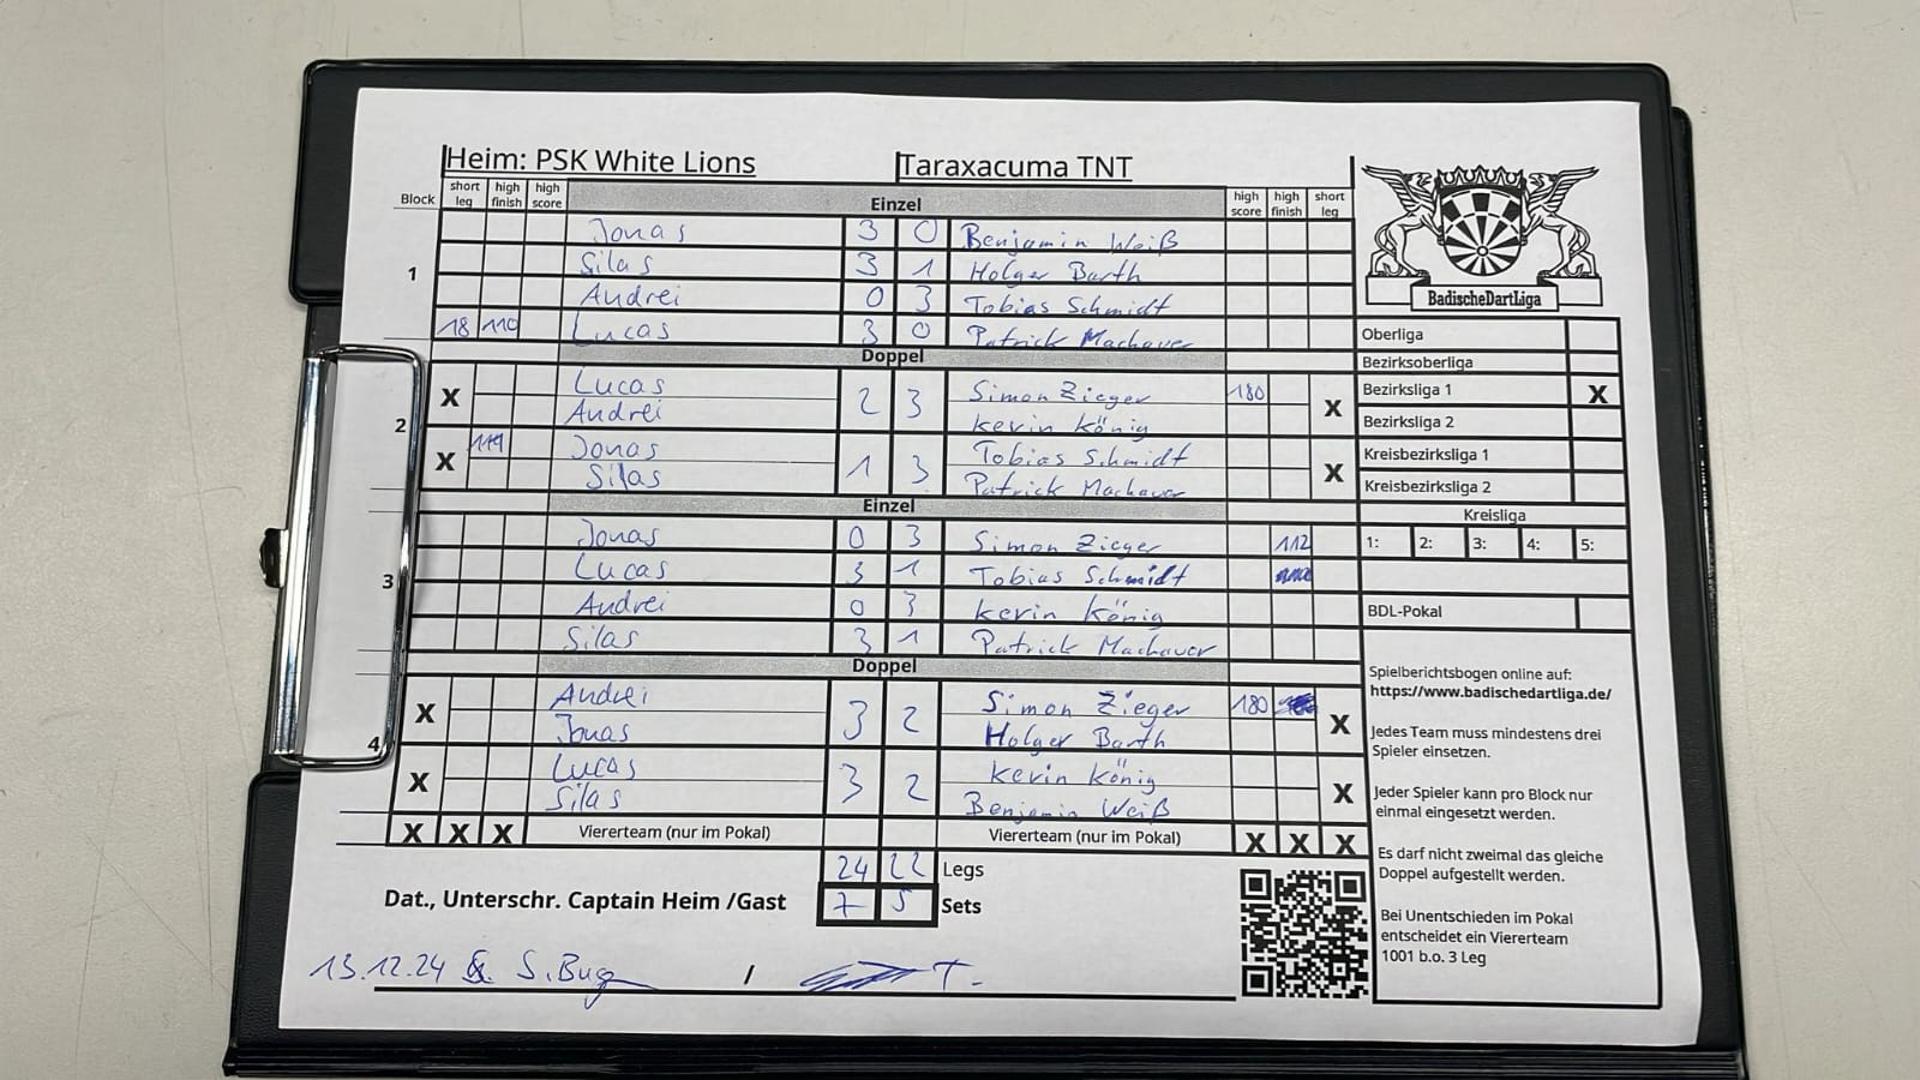 Heim: PSK White Lions Taraxacuma TNT
Block short leg high finish high score Einzel high score high finish short leg
1
Jonas 3 0 Benjamin Weiß
Silas 3 1 Holger Barth
Andrei 0 3 Tobias Schmidt
18 110 Lucas 3 0 Patrick Machauer
Doppel
2
X Lucas 2 3 Simon Zieger 180 X
Andrei kevin könig
X 119 Jonas 1 3 Tobias Schmidt X
Silas Patrick Machauer
Einzel
3
Jonas 0 3 Simon Zieger 112
Lucas 3 1 Tobias Schmidt
Andrei 0 3 kevin könig
Silas 3 1 Patrick Machauer
Doppel
4
X Andrei 3 2 Simon Zieger 180 X
Jonas Holger Barth
X Lucas 3 2 kevin könig X
Silas Benjamin Weiß
X X X Viererteam (nur im Pokal) Viererteam (nur im Pokal) X X X
24 22 Legs
Dat., Unterschr. Captain Heim /Gast 7 5 Sets
13.12.24 S. Bug / T.
BadischeDartLiga
Oberliga
Bezirksoberliga
Bezirksliga 1 X
Bezirksliga 2
Kreisbezirksliga 1
Kreisbezirksliga 2
Kreisliga
1: 2: 3: 4: 5:
BDL-Pokal
Spielberichtsbogen online auf:
https://www.badischedartliga.de/
Jedes Team muss mindestens drei
Spieler einsetzen.
Jeder Spieler kann pro Block nur
einmal eingesetzt werden.
Es darf nicht zweimal das gleiche
Doppel aufgestellt werden.
Bei Unentschieden im Pokal
entscheidet ein Viererteam
1001 b.o. 3 Leg